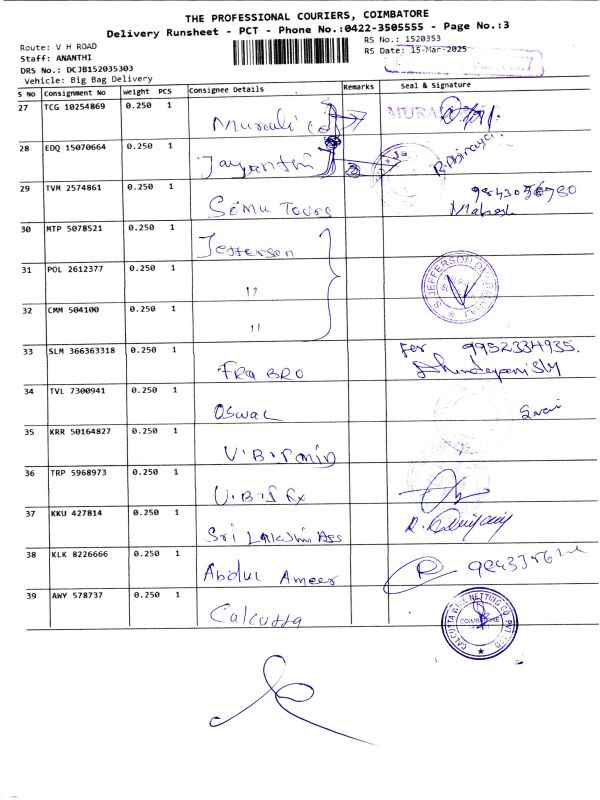 THE PROFESSIONAL COURIERS, COIMBATORE
Delivery Runsheet - PCT - Phone No.:0422-3505555 - Page No.:3
Route: V H ROAD
RS No.: 1520353
Staff: ANANTHI
RS Date: 15-Mar-2025
DRS No.: DCJB152035303
Vehicle: Big Bag Delivery
S No Consignment No Weight PCS Consignee Details Remarks Seal & Signature
27 TCG 10254869 0.250 1 Murali Co MURALI
28 EDQ 15070664 0.250 1 Jayanthi R.Abinaya
29 TVM 2574861 0.250 1 Semu Toors Mahesh
30 MTP 5078521 0.250 1 Jefferson
31 POL 2612377 0.250 1 "
32 CMM 504100 0.250 1 "
33 SLM 366363318 0.250 1 FRA BRO For 9952334935.
34 TVL 7300941 0.250 1 Oswal
35 KRR 50164827 0.250 1 V.B.
36 TRP 5968973 0.250 1 V.B.
37 KKU 427814 0.250 1 Sri Lakshmi Ass
38 KLK 8226666 0.250 1 Abdul Ameer
39 AWY 578737 0.250 1 Calcutta COIMBATORE